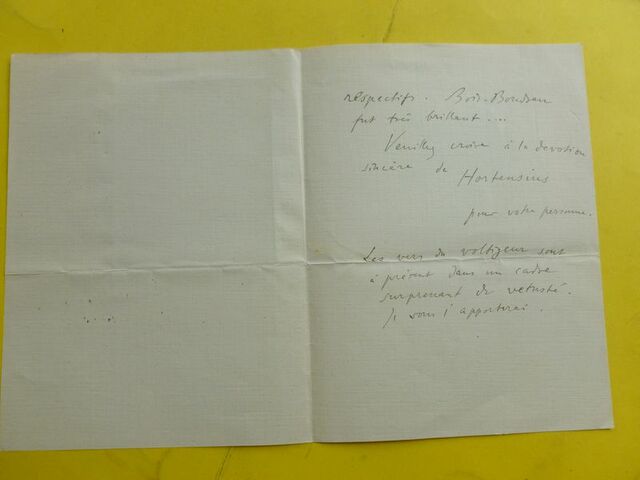 respectifs. Bois-Boudran
fut très brillant....
Veuillez croire à la devotion
sincère de Hortensius
pour votre personne.
Les vers du voltigeur sont
à présent dans un cadre
surprenant de vetusté.
Je vous l'apporterai.